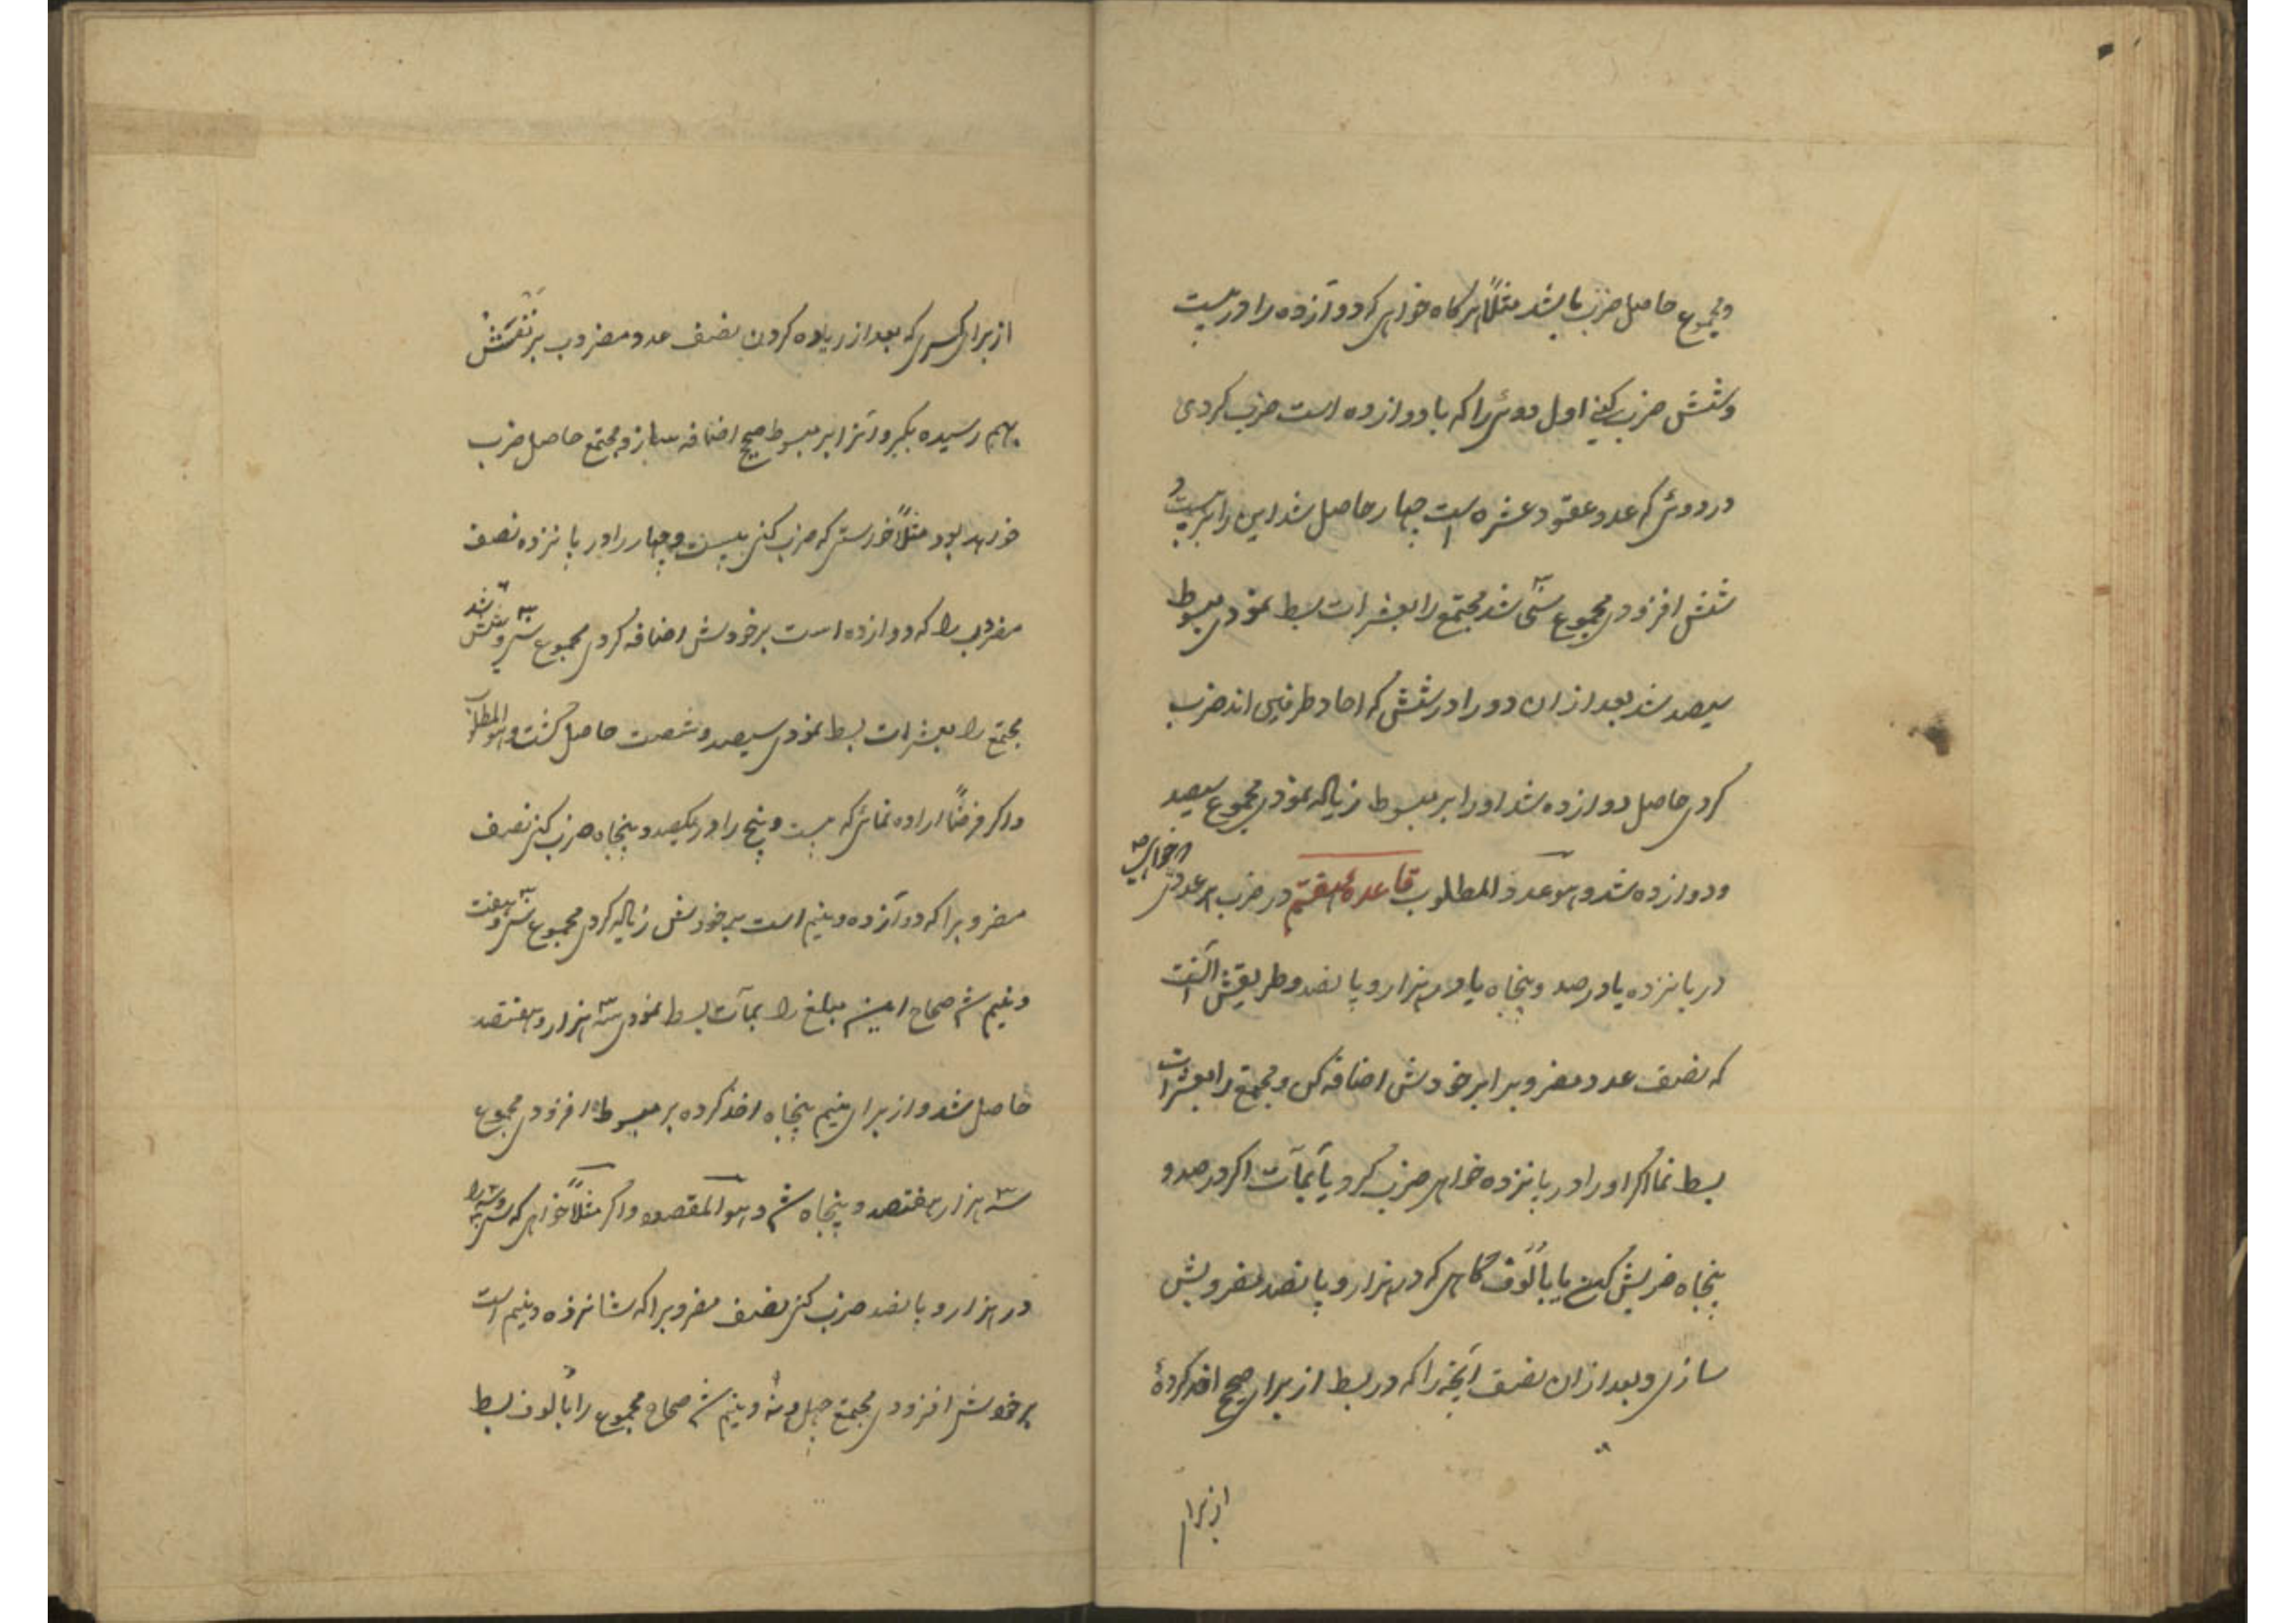 ومجموع حاصل ضرب باشد مثلاً هرگاه خواهی که دوآزده را در بیست
وشش ضرب کنی اول دوئی را که با دوازده است ضرب کردی
در دوئی که عدد عقود عشره است چهار حاصل شد این را بر بیست و
شش افزودی مجموع سی شد مجتمع را بعشرات بسط نمودی مبسوط
سیصد شد بعد ازان دو را در شش که احاد طرفین اند ضرب
کردی حاصل دوازده شد او را بر مبسوط زیاده نمودی مجموع سیصد
ودوازده شد وهو عدد المطلوب قاعدۀ هفتم در ضرب هر عددی که خواهی
در پانزده یا در صد وپنجاه یا در هزار و پانصد وطریقش آنست
که نصف عدد مضروبرا بر خودش اضافه کن ومجتمع را بعشرات
بسط نما اگر او را در پانزده خواهی ضرب کرد یا بمآت اگر در صد و
پنجاه ضربش کنی یا بالوف گاهی که در هزار و پانصد مضروبش
سازی و بعد ازان نصف آنچه را که در بسط از برای صحیح اخذ کردۀ
از برای
از برای کسری که بعد از زیاده کردن نصف عدد مضروب بر نفسش
بهم رسیده بگیر و آنرا بر مبسوط صحیح اضافه ساز و مجتمع حاصل ضرب
خواهد بود مثلاً خواستی که ضرب کنی بیست وچهار را در پانزده نصف
مضروب را که دوازده است بر خودش اضافه کردی مجموع سی وشش شد
مجتمع را بعشرات بسط نمودی سیصد و شصت حاصل گشت وهو المطلوب
واگر فرضاً اراده نمائی که بیست وپنج را در یکصد وپنجاه ضرب کنی نصف
مضروبرا که دوآزده ونیم است بر خودش زیاده کردی مجموع سی وهفت
ونیم شد صحاح این مبلغ را بمآت بسط نمودی سه هزار و هفتصد
حاصل شد و از برای نیم پنجاه اخذ کرده بر مبسوط افزودی مجموع
سه هزار و هفتصد و پنجاه شد وهو المقصود واگر مثلاً خواهی که سی وسه را
در هزار و پانصد ضرب کنی نصف مضروبرا که شانزده ونیم است
بر خودش افزودی مجتمع چهل ونه ونیم شد صحاح مجموع را بالوف بسط